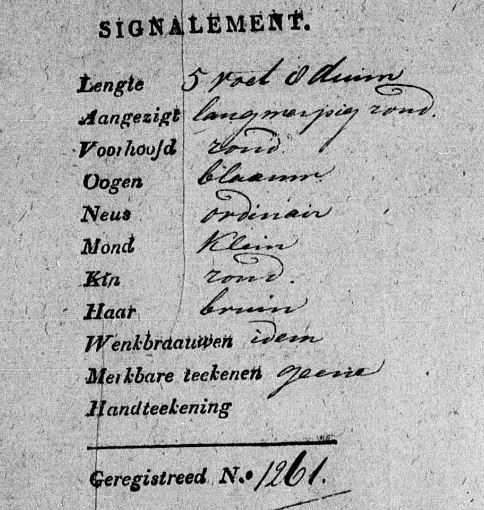 SIGNALEMENT.
Lengte 5 voet 8 duim
Aangezigt langwerpig rond.
Voorhoofd rond.
Oogen blaauw.
Neus ordinair
Mond Klein
Kin rond.
Haar bruin
Wenkbraauwen idem
Merkbare teekenen geene
Handteekening
Geregistreed N.o 1261.